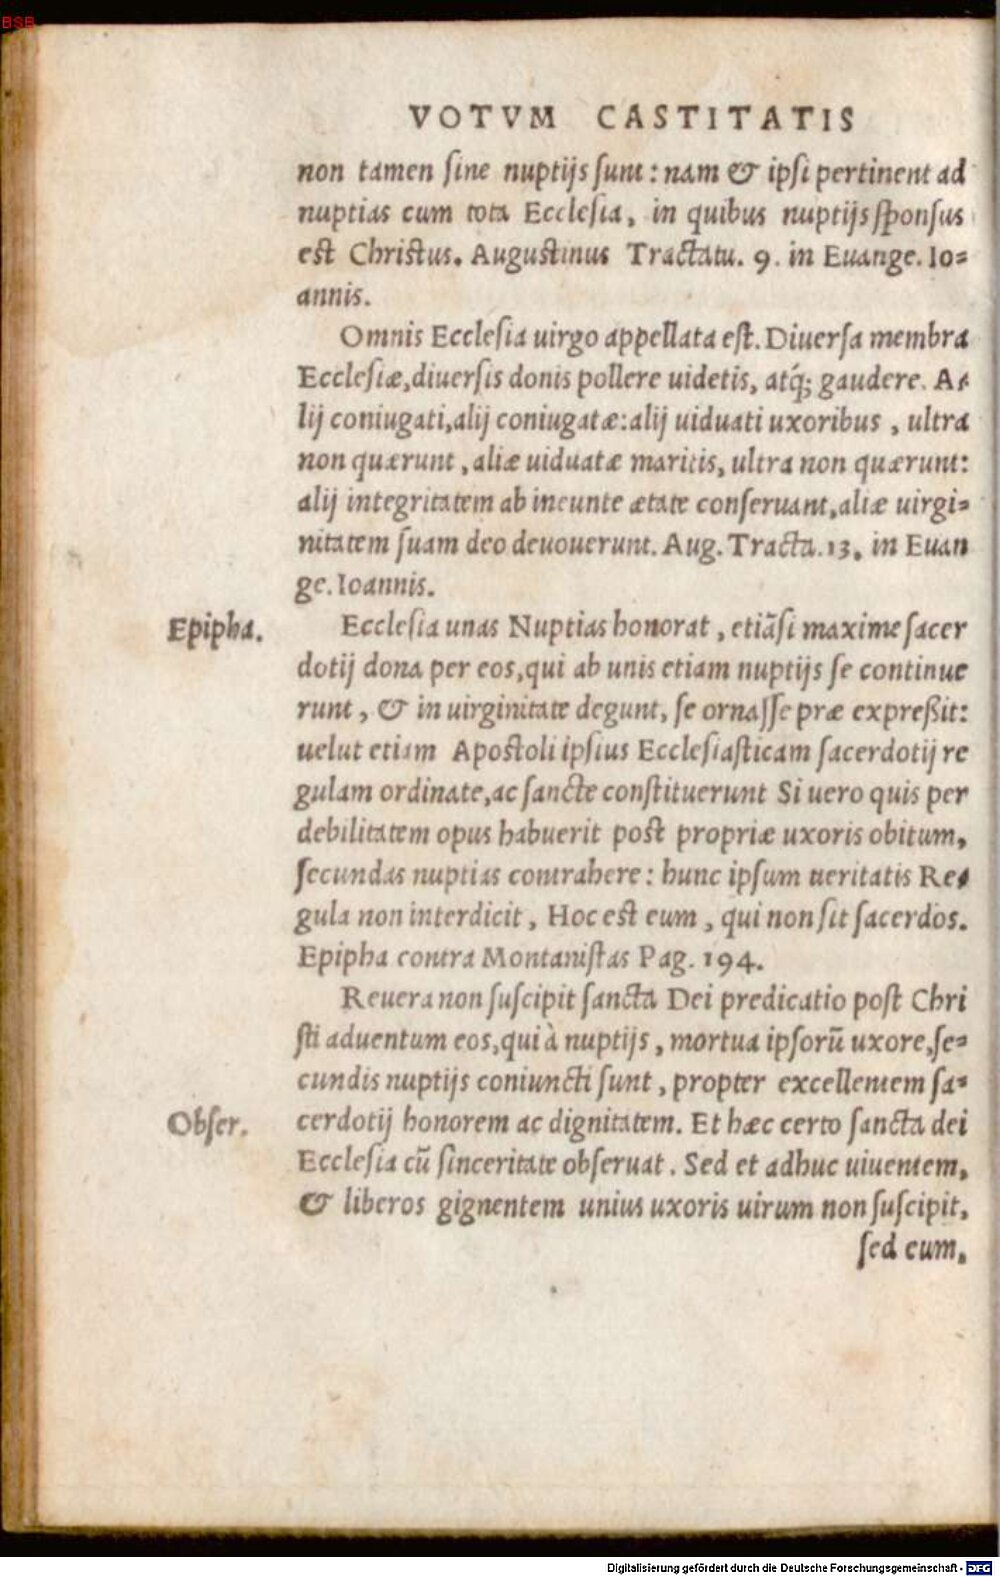 BSB
VOTVM CASTITATIS
non tamen sine nuptijs sunt: nam & ipsi pertinent ad
nuptias cum tota Ecclesia, in quibus nuptijs sponsus
est Christus. Augustinus Tractatu. 9. in Euange. Io-
annis.
Omnis Ecclesia uirgo appellata est. Diuersa membra
Ecclesiæ, diuersis donis pollere uidetis, atq́; gaudere. A-
lij coniugati, alij coniugatæ: alij uiduati uxoribus, ultra
non quærunt, aliæ uiduatæ maritis, ultra non quærunt:
alij integritatem ab ineunte ætate conseruant, aliæ uirgi-
nitatem suam deo deuouerunt. Aug. Tracta. 13. in Euan
ge. Ioannis.
Epipha. Ecclesia unas Nuptias honorat, etiãsi maxime sacer
dotij dona per eos, qui ab unis etiam nuptijs se continue
runt, & in uirginitate degunt, se ornasse præ expreßit:
uelut etiam Apostoli ipsius Ecclesiasticam sacerdotij re
gulam ordinate, ac sancte constituerunt Si uero quis per
debilitatem opus habuerit post propriæ uxoris obitum,
secundas nuptias contrahere: hunc ipsum ueritatis Re-
gula non interdicit, Hoc est eum, qui non sit sacerdos.
Epipha contra Montanistas Pag. 194.
Reuera non suscipit sancta Dei predicatio post Chri
sti aduentum eos, qui à nuptijs, mortua ipsorũ uxore, se-
cundis nuptijs coniuncti sunt, propter excellentem sa-
Obser. cerdotij honorem ac dignitatem. Et hæc certo sancta dei
Ecclesia cũ sinceritate obseruat. Sed et adhuc uiuentem,
& liberos gignentem unius uxoris uirum non suscipit,
sed eum,
Digitalisierung gefördert durch die Deutsche Forschungsgemeinschaft - DFG